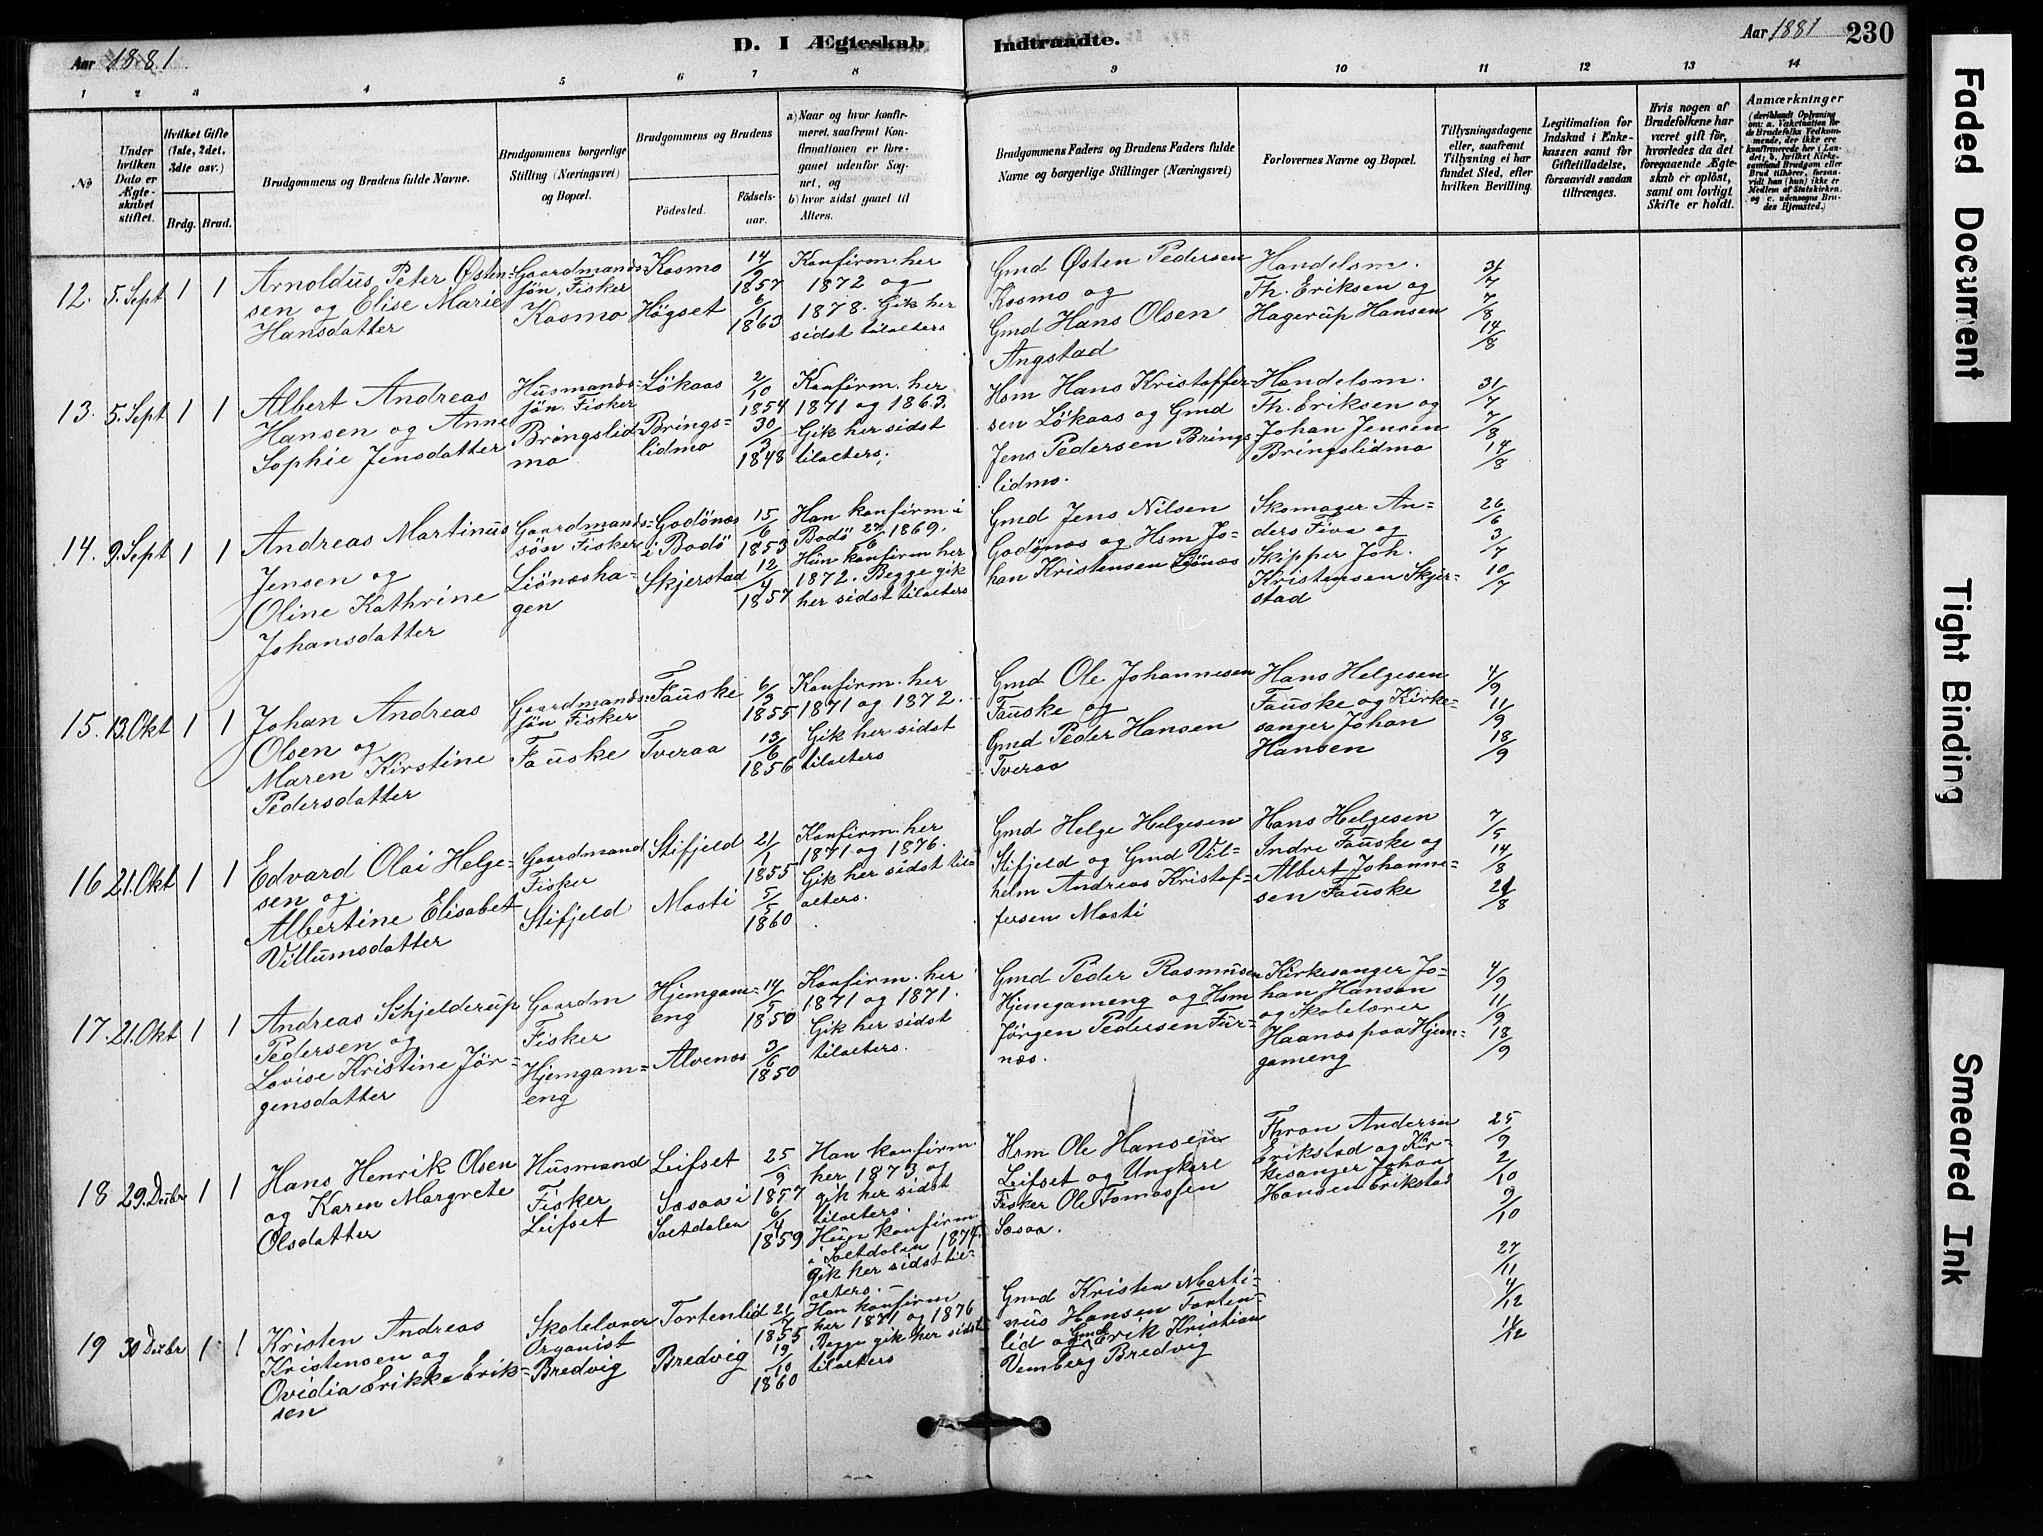 Aar 1881.
D. I Ægteskab Indtraadte.
Aar 1881
230
1 2 3 4 5 6 7 8 9 10 11 12 13 14
No
Under hvilken Dato er Ægteskabet stiftet.
Hvilket Gifte (1ste, 2det, 3die osv.)
Brdg. Brud.
Brudgommens og Brudens fulde Navne.
Brudgommens borgerlige Stilling (Næringsvei) og Bopæl.
Brudgommens og Brudens
Fødested.
Fødselsaar.
a) Naar og hvor konfirmeret, saafremt Konfirmationen er foregaaet udenfor Sognet, og
b) hvor sidst gaaet til Alters.
Brudgommens Faders og Brudens Faders fulde Navne og borgerlige Stillinger (Næringsvei)
Forlovernes Navne og Bopæl.
Tillysningsdagene eller, saafremt Tillysning ei har fundet Sted, efter hvilken Bevilling.
Legitimation for Indskud i Enkekassen samt for Giftetilladelse, forsaavidt saadan tiltrænges.
Hvis nogen af Brudefolkene har været gift før, hvorledes da det foregaaende Ægteskab er opløst, samt om lovligt Skifte er holdt.
Anmærkninger
12. 5. Sept 1 1
Arnoldus Peter Østen=
sen og Elise Marie
Hansdatter
Gaardmands=
søn, Fisker
Kosmo
Kosmo
Høgset
14/9
1857
6/1
1863
Konfirm. her
1872 og
1878. Gik her
sidst tilalters
Gmd Østen Pedersen
Kosmo og
Gmd Hans Olsen
Angstad
Handelsm.
Th. Eriksen og
Hagerup Hansen
31/7
7/8
14/8
13. 5. Sept 1 1
Albert Andreas
Hansen og Anne
Sophie Jensdatter
Husmands=
søn, Fisker
Bringslid
mo
Løkaas
Brings=
lidmo
2/10
1854
30/3
1848
Konfirm. her
1871 og 1863.
Gik her sidst
tilalters.
Hsm Hans Kristoffer=
sen Løkaas og Gmd
Jens Pedersen Brings=
lidmo.
Handelsm.
Th. Eriksen og
Johan Jensen
Bringslidmo
31/7
7/8
14/8
14. 9. Sept 1 1
Andreas Martinus
Jensen og
Oline Kathrine
Johansdatter
Gaardmands=
søn Fisker
Liønesha=
gen
Godønes
i Bodø
Skjerstad
15/6
1853
12/4
1857
Han konfirm i
Bodø 27/6 1869.
Hun konfirm her
1872. Begge gik
her sidst tilalters
Gmd Jens Nilsen
Godønes og Hsm Jo=
han Kristensen Liønes
Skomager An=
ders Fiva og
Skipper Joh.
Kristensen Skjer=
stad
26/6
3/7
10/7
15. 13. Okt 1 1
Johan Andreas
Olsen og
Maren Kirstine
Pedersdatter
Gaardmands=
søn Fisker
Fauske
Fauske
Tveraa
6/9
1855
13/6
1856
Konfirm. her
1871 og 1872.
Gik her sidst
tilalters
Gmd Ole Johannesen
Fauske og
Gmd Peder Hansen
Tveraa
Hans Helgesen
Fauske og Kirke=
sanger Johan
Hansen
4/9
11/9
18/9
16 21. Okt 1 1
Edvard Olai Helge=
sen og
Albertine Elisabet
Villumsdatter
Gaardmand
Fisker
Stifjeld
Stifjeld
Mosti
21/1
1855
5/5
1860
Konfirm. her
1871 og 1876.
Gik her sidst til=
alters.
Gmd Helge Helgesen
Stifjeld og Gmd Vil=
helm Andreas Kristof=
fersen Mosti
Hans Helgesen
Indre Fauske og
Albert Johanne=
sen Fauske
14/8
21/8
17. 21. Okt 1 1
Andreas Schjelderup
Pedersen og
Lovise Kristine Jør=
gensdatter
Gaardm
Fisker
Hjemgam=
eng
Hjemgam=
eng
Alvenes
14/5
1850
3/6
1850
Konfirm. her
1871 og 1871.
Gik her sidst
tilalters.
Gmd Peder Rasmusen
Hjemgameng og Hsm
Jørgen Pedersen Fur=
næs.
Kirkesanger Jo=
han Hansen
og Skolelærer
Haanes paa Hjem=
gameng
4/9
11/9
18/9
18 29. Decbr 1 1
Hans Henrik Olsen
og Karen Margrete
Olsdatter
Husmand
Fisker
Leifset
Leifset
Sæsaa i
Saltdalen
25/9
1857
6/4
1859
Han konfirm.
her 1873 og
gik her sidst
tilalters.
Hun konfirm.
i Saltdalen 1874.
gik her sidst til=
alters.
Hsm Ole Hansen
Leifset og Ungkarl
Fisker Ole Tomassen
Sæsaa.
Thron Andersen
Erikstad og Kir=
kesanger Johan
Hansen Erikstad
25/9
2/10
9/10
19 30 Decbr 1 1
Kristen Andreas
Kristensen og
Ovidia Erikke Erik=
sen
Skolelærer
Organist
Bredvig
Tortenlid
Bredvig
1855
19/10
1860
Han konfirm
her 1871 og 1876
Begge gik her sidst
tilalters
Gmd Kristen Marti=
nus Hansen Torten=
lid og Gmd Erik Kristian
Vemberg Bredvig
27/11
4/12
11/12
Faded Document
Tight Binding
Smeared Ink